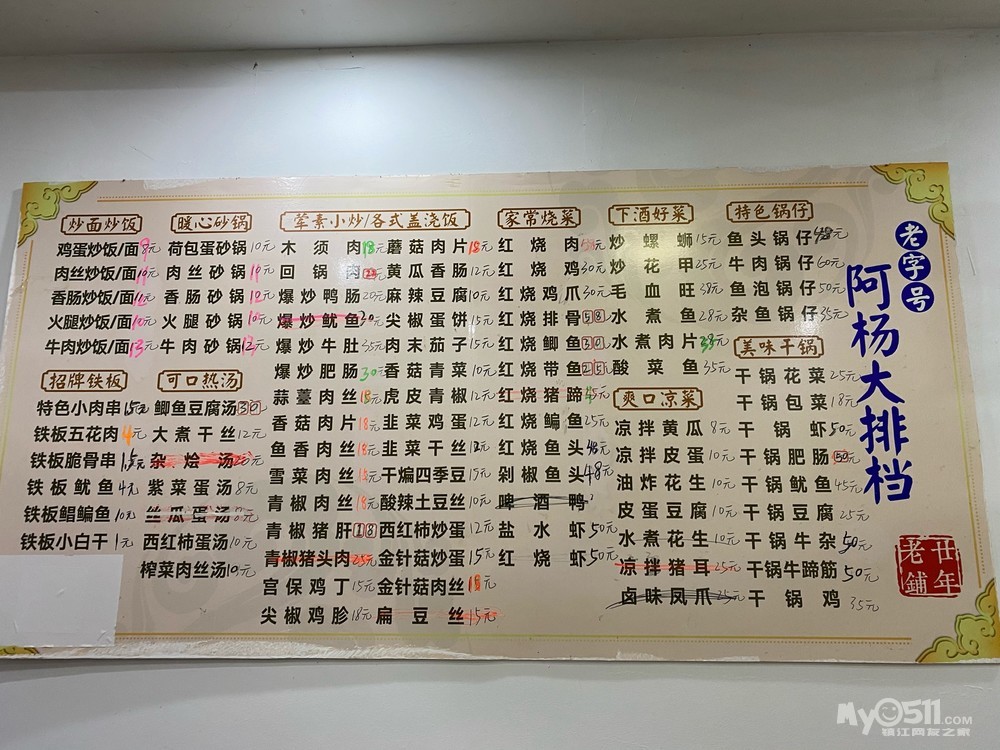 老字号
阿杨大排档
廿年老铺
炒面炒饭
鸡蛋炒饭/面 9元
肉丝炒饭/面
香肠炒饭/面
火腿炒饭/面
牛肉炒饭/面 13元
招牌铁板
特色小肉串
铁板五花肉 4元
铁板脆骨串
铁板鱿鱼 4元
铁板鲳鳊鱼 10元
铁板小白干 1元
暖心砂锅
荷包蛋砂锅 10元
肉丝砂锅
香肠砂锅
火腿砂锅
牛肉砂锅
可口热汤
鲫鱼豆腐汤 30
大煮干丝 12元
杂烩汤
紫菜蛋汤 8元
丝瓜蛋汤 8元
西红柿蛋汤 10元
榨菜肉丝汤 10元
荤素小炒/各式盖浇饭
木须肉 18元
回锅肉
爆炒鸭肠 20元
爆炒鱿鱼 30元
爆炒牛肚 35元
爆炒肥肠 30元
蒜薹肉丝
香菇肉片
鱼香肉丝
雪菜肉丝
青椒肉丝
青椒猪肝 18
青椒猪头肉
宫保鸡丁 15元
尖椒鸡胗 18元
蘑菇肉片 18元
黄瓜香肠 12元
麻辣豆腐 10元
尖椒蛋饼 15元
肉末茄子 15元
香菇青菜 10元
虎皮青椒 12元
韭菜鸡蛋 12元
韭菜干丝 12元
干煸四季豆 15元
酸辣土豆丝 10元
西红柿炒蛋 12元
金针菇炒蛋 15元
金针菇肉丝
扁豆丝 15元
家常烧菜
红烧肉
红烧鸡 30元
红烧鸡爪 30元
红烧排骨 58
红烧鲫鱼 30
红烧带鱼 25
红烧猪蹄
红烧鳊鱼 25元
红烧鱼头
剁椒鱼头 48元
啤酒鸭
盐水虾 50元
红烧虾 50元
下酒好菜
炒螺蛳 15元
炒花甲 25元
毛血旺 38元
水煮鱼 28元
水煮肉片
酸菜鱼 35元
爽口凉菜
凉拌黄瓜 8元
凉拌皮蛋 10元
油炸花生 10元
皮蛋豆腐 10元
水煮花生 10元
凉拌猪耳 25元
卤味凤爪 25元
特色锅仔
鱼头锅仔
牛肉锅仔 60元
鱼泡锅仔 50元
杂鱼锅仔 35元
美味干锅
干锅花菜 25元
干锅包菜 18元
干锅虾 50元
干锅肥肠 50
干锅鱿鱼 45元
干锅豆腐 25元
干锅牛杂 50元
干锅牛蹄筋 50元
干锅鸡 35元
My0511.COM
镇江网友之家